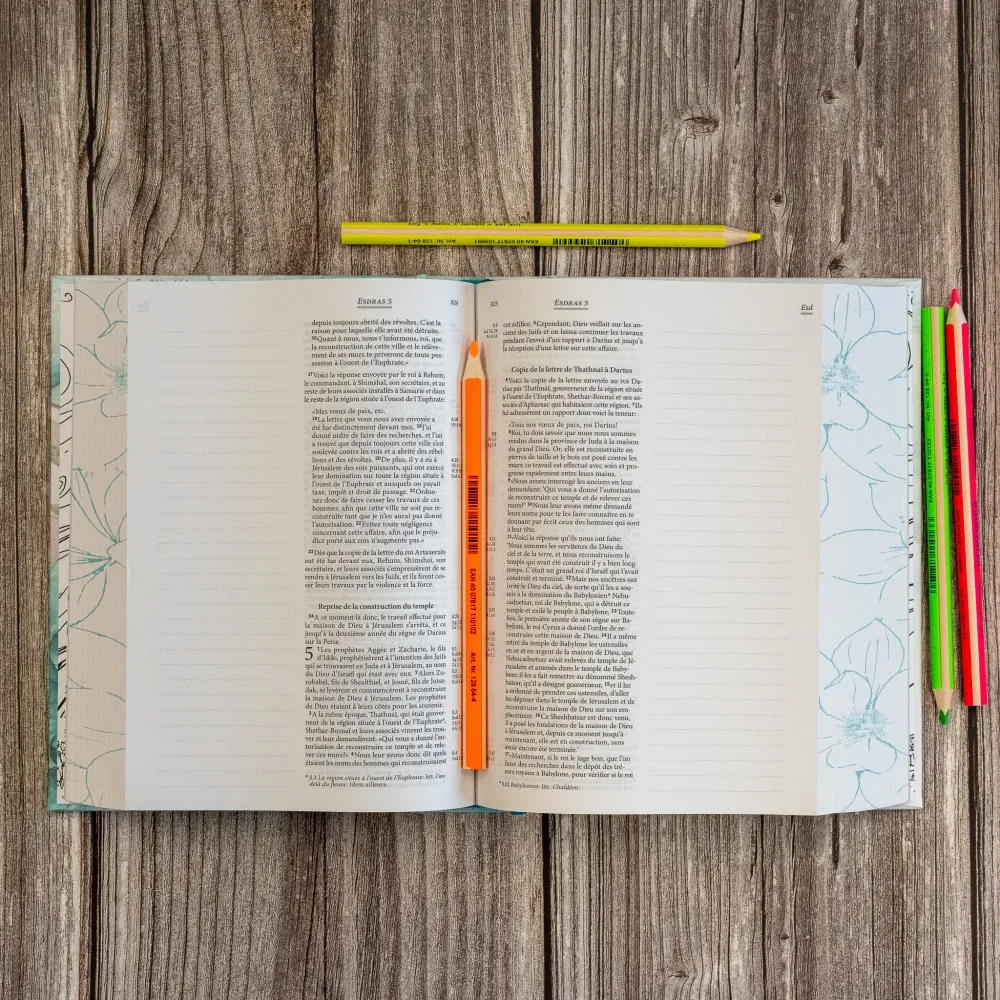 ESDRAS 5
824
depuis toujours abrité des révoltes. C'est la
raison pour laquelle elle avait été détruite.
16Quant à nous, nous t'informons, roi, que
la reconstruction de cette ville et le relève-
ment de ses murs te priveront de toute pos-
session à l'ouest de l'Euphrate.»
17Voici la réponse envoyée par le roi à Rehum,
le commandant, à Shimshaï, son secrétaire, et au
reste de leurs associés installés à Samarie et dans
le reste de la région située à l'ouest de l'Euphrate:
«Mes vœux de paix, etc.
18La lettre que vous nous avez envoyée a
été lue distinctement devant moi. 19J'ai
donné ordre de faire des recherches, et l'on
a trouvé que depuis toujours cette ville s'est
soulevée contre les rois et a abrité des rébel-
lions et des révoltes. 20De plus, il y a eu à
Jérusalem des rois puissants, qui ont exercé
leur domination sur toute la région située à
l'ouest de l'Euphrate et auxquels on payait
taxe, impôt et droit de passage. 21Ordon-
nez donc de faire cesser les travaux de ces
hommes, afin que cette ville ne soit pas re-
construite tant que je n'en aurai pas donné
l'autorisation. 22Evitez toute négligence
concernant cette affaire, afin que le préju-
dice porté aux rois n'augmente pas.»
23Dès que la copie de la lettre du roi Artaxerxès
eut été lue devant eux, Rehum, Shimshaï, son
secrétaire, et leurs associés s'empressèrent de se
rendre à Jérusalem vers les Juifs, et ils firent ces-
ser leurs travaux par la violence et la force.
Reprise de la construction du temple
24A ce moment-là donc, le travail effectué pour
la maison de Dieu à Jérusalem s'arrêta, et ce
jusqu'à la deuxième année du règne de Darius
sur la Perse.
5 1Les prophètes Aggée et Zacharie, le fils
d'Iddo, prophétisèrent à l'intention des Juifs
qui se trouvaient en Juda et à Jérusalem, au nom
du Dieu d'Israël qui était avec eux. 2Alors Zo-
robabel, fils de Shealthiel, et Josué, fils de Jotsa-
dak, se levèrent et commencèrent à reconstruire
la maison de Dieu à Jérusalem. Les prophètes
de Dieu étaient à leurs côtés pour les soutenir.
3A la même époque, Thathnaï, qui était gouver-
neur de la région située à l'ouest de l'Euphrate*,
Shethar-Boznaï et leurs associés vinrent les trou-
ver et leur demandèrent: «Qui vous a donné l'au-
torisation de reconstruire ce temple et de rele-
ver ces murs?» 4Nous leur avons donc dit quels
étaient les noms des hommes qui reconstruisaient
* 5.3 Le région située à l'ouest de l'Euphrate: litt. l'au-
delà du fleuve. Idem ailleurs.
825
ESDRAS 5
Esd
cet édifice. 5Cependant, Dieu veillait sur les an-
ciens des Juifs et on laissa continuer les travaux
pendant l'envoi d'un rapport à Darius et jusqu'à
la réception d'une lettre sur cette affaire.
Copie de la lettre de Thathnaï à Darius
6Voici la copie de la lettre envoyée au roi Da-
rius par Thathnaï, gouverneur de la région située
à l'ouest de l'Euphrate, Shethar-Boznaï et ses as-
sociés d'Apharsac qui habitaient cette région. 7Ils
lui adressèrent un rapport dont voici la teneur:
«Tous nos vœux de paix, roi Darius!
8Roi, tu dois savoir que nous nous sommes
rendus dans la province de Juda à la maison
du grand Dieu. Or, elle est reconstruite en
pierres de taille et le bois est posé contre les
murs; ce travail est effectué avec soin et pro-
gresse rapidement entre leurs mains.
9Nous avons interrogé les anciens en leur
demandant: 'Qui vous a donné l'autorisation
de reconstruire ce temple et de relever ces
murs?' 10Nous leur avons même demandé
leurs noms pour te les faire connaître en te
donnant par écrit ceux des hommes qui sont
à leur tête.
11»Voici la réponse qu'ils nous ont faite:
'Nous sommes les serviteurs du Dieu du
ciel et de la terre, et nous reconstruisons le
temple qui avait été construit il y a bien long-
temps. C'était un grand roi d'Israël qui l'avait
construit et terminé. 12Mais nos ancêtres ont
irrité le Dieu du ciel, de sorte qu'il les a sou-
mis à la domination du Babylonien* Nebu-
cadnetsar, roi de Babylone, qui a détruit ce
temple et exilé le peuple à Babylone. 13Toute-
fois, la première année de son règne sur Ba-
bylone, le roi Cyrus a donné l'ordre de re-
construire cette maison de Dieu. 14Il a même
retiré du temple de Babylone les ustensiles
en or et en argent de la maison de Dieu, que
Nebucadnetsar avait enlevés du temple de Jé-
rusalem et amenés dans le temple de Baby-
lone; il les a fait remettre au dénommé Shesh-
batsar, qu'il a désigné gouverneur, 15et il lui
a ordonné de prendre ces ustensiles, d'aller
les déposer dans le temple de Jérusalem et de
reconstruire la maison de Dieu sur son em-
placement. 16Ce Sheshbatsar est donc venu,
il a posé les fondations de la maison de Dieu
à Jérusalem et, depuis ce moment jusqu'à
maintenant, elle est en construction, sans
avoir encore été terminée.'
17»Maintenant, si le roi le juge bon, que l'on
fasse des recherches dans le dépôt des tré-
sors royaux à Babylone, pour vérifier si le roi
* 5.12 Babylonien: litt. Chaldéen.
EAN 40 07817 110102 Art. Nr. 128 64-4
EAN 40 07817 109991 Art. Nr. 128 64-1